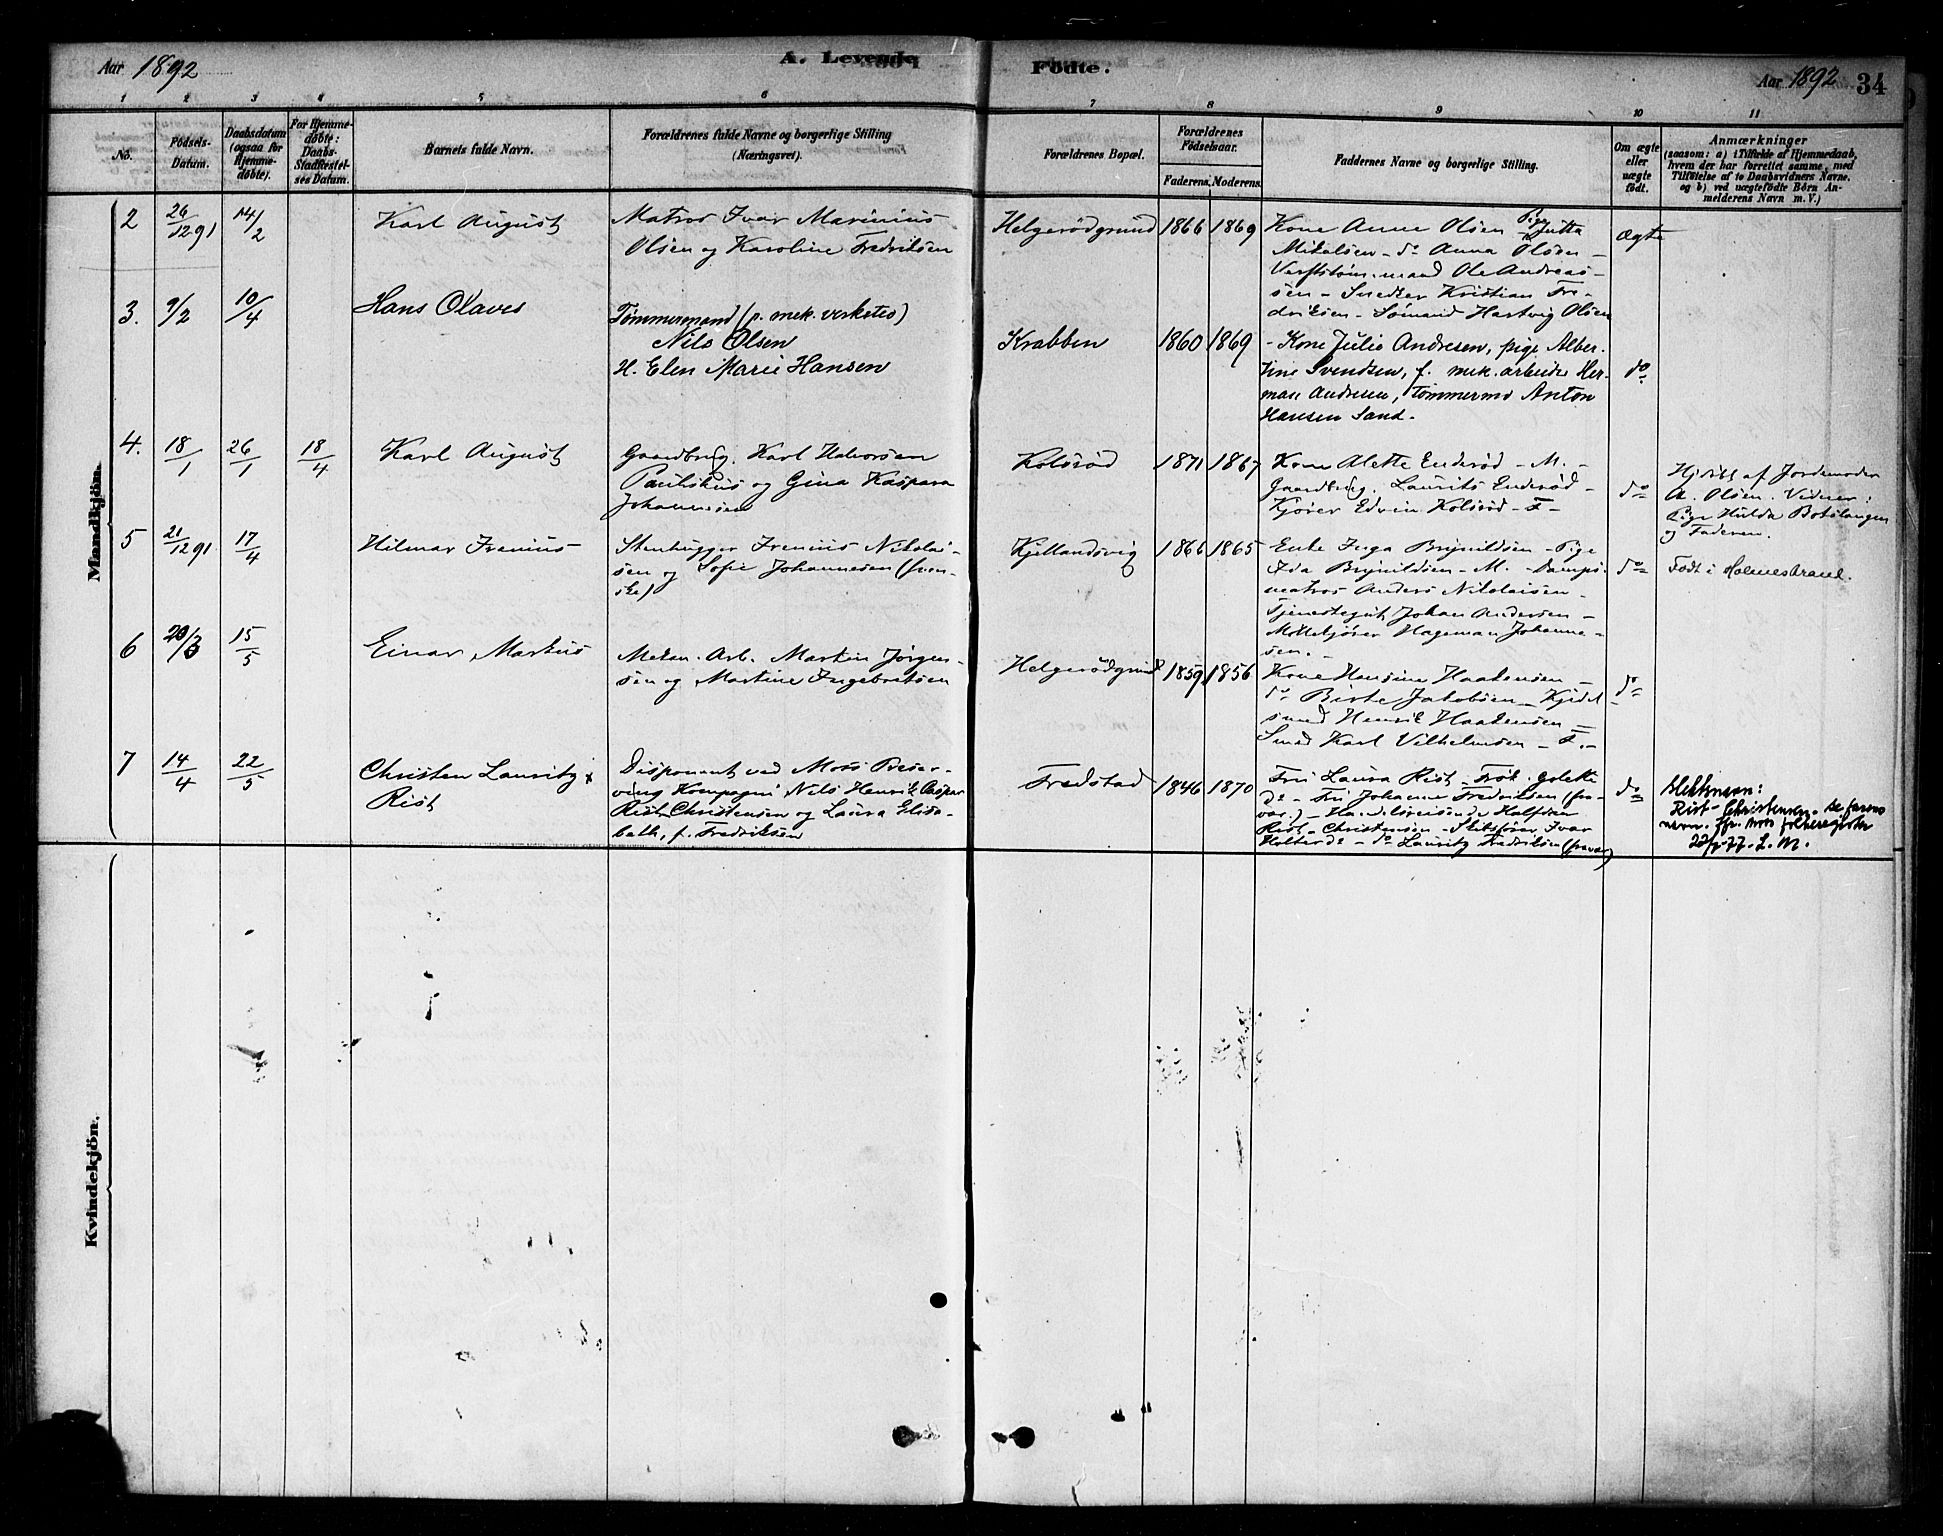 Aar 1892
A. Levende Födte.
Aar 1892 34
1 2 3 4 5 6 7 8 9 10 11
No.
Födsels-Datum.
Daabsdatum (ogsaa for Hjemme-döbte).
For Hjemme-döbte: Daabs-Stadfæstel-ses Datum.
Barnets fulde Navn.
Forældrenes fulde Navne og borgerlige Stilling (Næringsvei).
Forældrenes Bopæl.
Forældrenes Födselsaar.
Faderens. Moderens.
Faddernes Navne og borgerlige Stilling.
Om ægte eller uægte födt.
Anmærkninger
(saasom: a) i Tilfælde af Hjemmedaab, hvem der har forrettet samme, med Tilföielse af to Daabsvidners Navne. og b) ved uægtefödte Börn An-melderens Navn m. V.)
Mandkjön.
2 26/12 91 14/2 Karl August
Matros Ivar Marinius
Olsen og Karoline Fredriksen
Helgerödgrund 1866 1869
Kone Anne Olsen Pige Jutta
Mikalsen - do Anna Olsen -
Verftstöm.mand Ole Andreas-
sen - Snedker Kristian Fre-
driksen - Sömand Hartvig Olsen
Ægte
3. 9/2 10/4 Hans Olaves
Tömmermand (p. mek. verksted)
Nils Olsen
H. Elen Marie Hansen
Krabben 1860 1869
- Kone Julie Andresen, pige Alber-
tine Svendsen, f. mek. arbeider Her-
man Andresen, tömmermd Anton
Hansen Sand.
do
4. 18/1 26/1 18/4 Karl August
Gaardbrug. Karl Halvorsen
Paulshus og Gina Kaspara
Johannesen
Kolsröd 1871 1867
Kone Alette Enderöd - M. -
Gaardbrug. Laurits Enderöd -
Kjörer Edvin Kolsröd - F -
do
Hjdöbt af Jordemoder
A. Olsen. Vidner:
Pige Hulda Botslangen
og Faderen.
5 21/12 91 17/4 Hilmar Irenius
Stenhugger Irenius Nikolai-
sen og Sofie Johannesen (sven-
ske)
Kjellandsvig 1866 1865
Enke Inga Brynildsen - Pige
Ida Brynildsen - M. - Damps.
matros Anders Nikolaisen -
Tjenestegut Johan Andersen -
Hageman Johanne-
sen. -
do
Födt i Holmestrand.
6 20/3 15/5 Einar Markus
Mekan. Arb. Martin Jörgen-
sen og Martine Ingebretsen
Helgerödgrund 1859 1856
Kone Hansine Haakensen -
do Birte Jakobsen - Kjedel
smed Henrik Haakensen -
Smed Karl Vilhelmsen - F. -
do
7 14/4 22/5 Christen Lauritz x
Rist
Disponent ved Moss
Kompagni Nils Henrik Caspar
Rist Christensen og Laura Elisa-
beth, f. Fredriksen
Fredstad 1846 1870
Fru Laura Rist - Frök. Golette
do - Fru Johanne Fredriksen (fra-
var.) - Halfdan
Rist - Christensen - Skibsförer Ivar
Holter do - do Lauritz Fredriksen (fravar)
do
Slektsnavn:
Rist-Christensen, se farens
navn. folkeregister
77. L. M.
Kvindekjön.